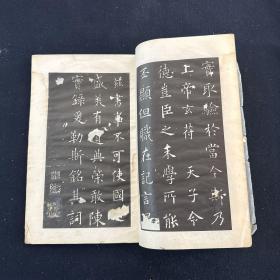 實取驗於當今斯乃
上帝玄符天子令
德豈臣之末學所能
丕顯但職在記言
茲書事不可使國
盛美有典策敢陳
實錄爰勒斯銘其詞